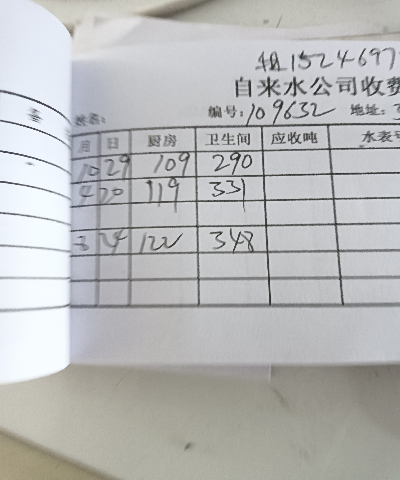 租1524697
自来水公司收费
姓名:
编号:109632 地址:3
月 日 厨房 卫生间 应收吨 水表号
10 29 109 290
4 20 119 331
8 24 122 348